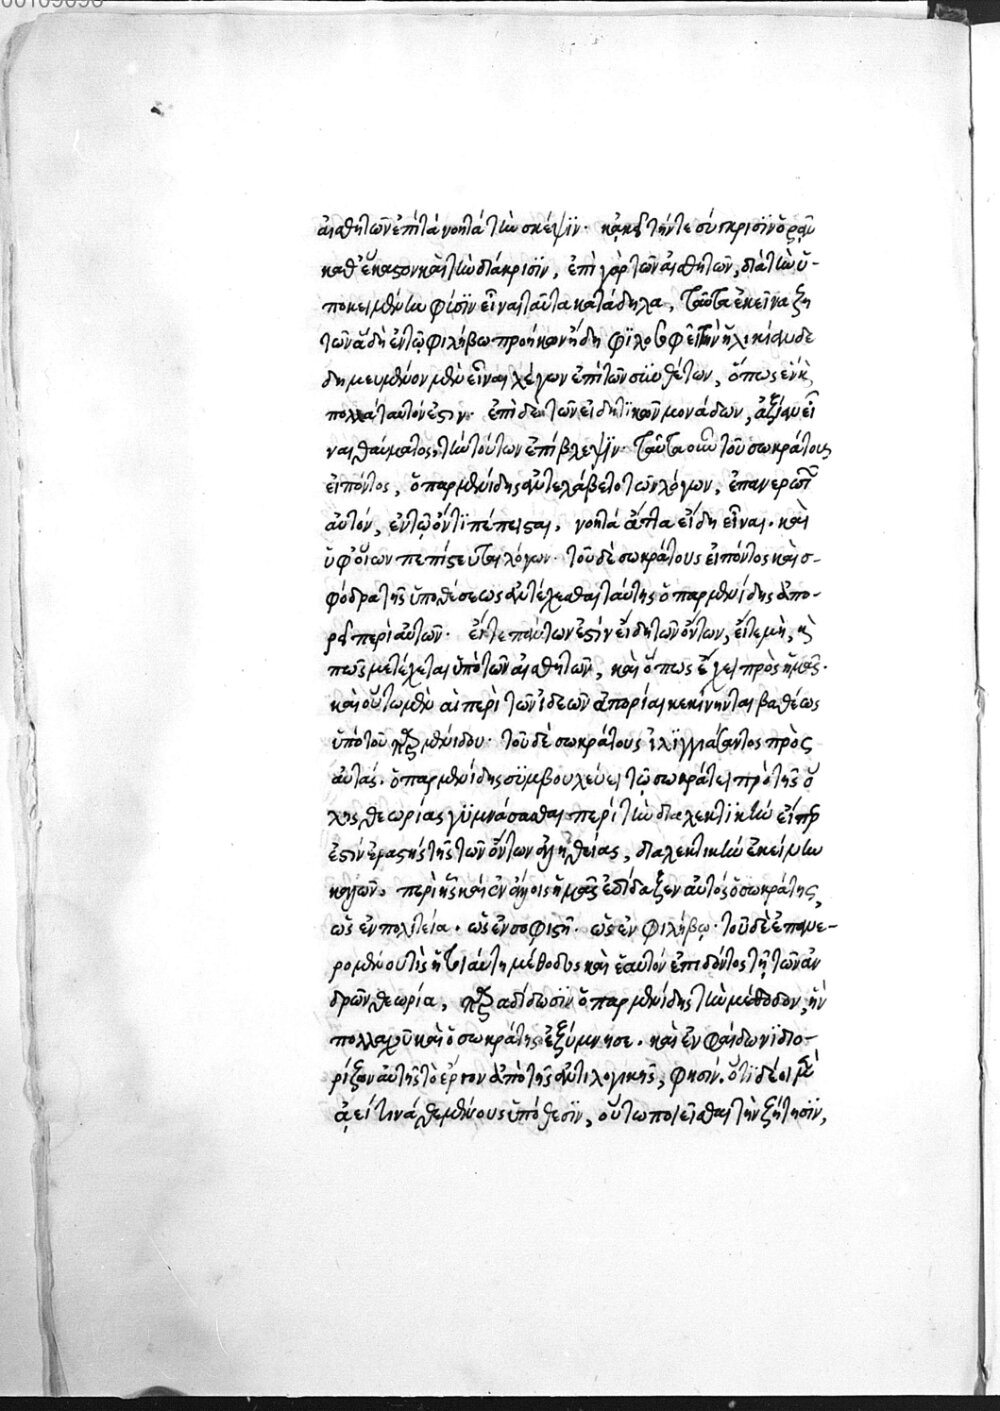 αἰσθητῶν ἐπὶ τὰ νοητὰ τὴν σκέψϊν· κἀκεῖ τήν τε σύγκρισϊν ὁρᾶν
καθ' ἕκαστον καὶ τὴν διάκρισϊν, ἐπὶ γὰρ τῶν αἰσθητῶν, διὰ τὴν ὑ-
ποκειμένην φύσϊν εἶναι ταῦτα κατάδηλα, ταῦτα ἐκεῖνα ζη
τῶν ἃ δὴ ἐν τῷ φιλήβῳ προήκων ἤδη τὴν ἡλικίαν δε
δημευμένον μὲν εἶναι λέγων ἐπὶ τῶν συνθέτων, ὅπως ἓν κ(αὶ)
πολλὰ ταυτόν ἐστιν· ἐπὶ δὲ τῶν εἰδητϊκῶν μονάδων, ἀξίαν εἶ
ναι θαύματος, τὴν τούτων ἐπίβλεψϊν· ταῦτα οὖν τοῦ σωκράτους
εἰπόντος, ὁ παρμενίδης ἀντελάβετο τῶν λόγων, ἐπανερωτᾶ
αὐτόν, εἰ τῷ ὄντϊ πέπεισται, νοητὰ ἄττα εἴδη εἶναι· καὶ
ὑφ' οἵων πεπίστευται λόγων· τοῦ δὲ σωκράτους εἰπόντος καὶ σ-
φόδρα τῆς ὑποθέσεως ἀντέχεσθαι ταύτης ὁ παρμενίδης ἀπο-
ρεῖ περὶ αὐτῶν· εἴτε πάντων ἐστὶν εἴδη τῶν ὄντων, εἴτε μὴ, κ(αὶ)
πῶς μετέχεται ὑπὸ τῶν αἰσθητῶν, καὶ ὅπως ἔχει πρὸς ἡμᾶς·
καὶ οὕτω μὲν αἱ περὶ τῶν ἰδεῶν ἀπορίαι κεκίνηνται βαθέως
ὑπὸ τοῦ παρμενίδου· τοῦ δὲ σωκράτους ἰλϊγγιάσαντος πρὸς
αὐτάς· ὁ παρμενίδης σϋμβουλεύει τῷ σωκράτει πρὸ τῆς ὅ
λης θεωρίας γϋμνάσασθαι περὶ τὴν διαλεκτϊκὴν εἴπερ
ἐστὶν ἐραστὴς τῆς τῶν ὄντων ἀληθείας, διαλεκτικὴν ἐκείνην
καλῶν· περὶ ἧς κἀν ἄλλοις ἡμᾶς ἐδίδαξεν αὐτὸς ὁ σωκράτης,
ὡς ἐν πολιτεία· ὡς ἐν σοφιστῆ· ὡς ἐν φιλήβῳ· τοῦ δὲ ἐπανε-
ρομένου τίς ἡ τοιαύτη μέθοδος καὶ ἑαυτὸν ἐπιδόντος τῇ τῶν ἀν
δρῶν θεωρία, παραδίδωσϊν ὁ παρμενίδης τὴν μέθοδον, ἣν
πολλαχοῦ καὶ ὁ σωκράτης ἐξύμνησε· καὶ ἐν φαίδωνϊ διο-
ρίζων αὐτῆς τὸ ἔργον ἀπὸ τῆς ἀντιλογικῆς, φησὶν· ὅτϊ δέοι μὲν
ἀεί τινα θεμένους ὑπόθεσϊν, οὕτω ποιεῖσθαι τὴν ζήτησϊν,